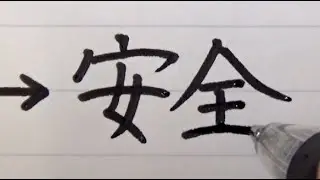 →安全